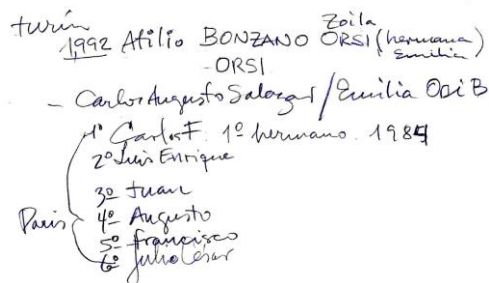 turín
Zoila
1,992 Atilio BONZANO ORSI (hermana Emilia)
- ORSI
- Carlos Augusto Salazar / Emilia Orsi B
1º Carlos F. 1º hermano. 1984
2º Luis Enrique
3º Juan
Paris 4º Augusto
5º francisco
6º Julio César